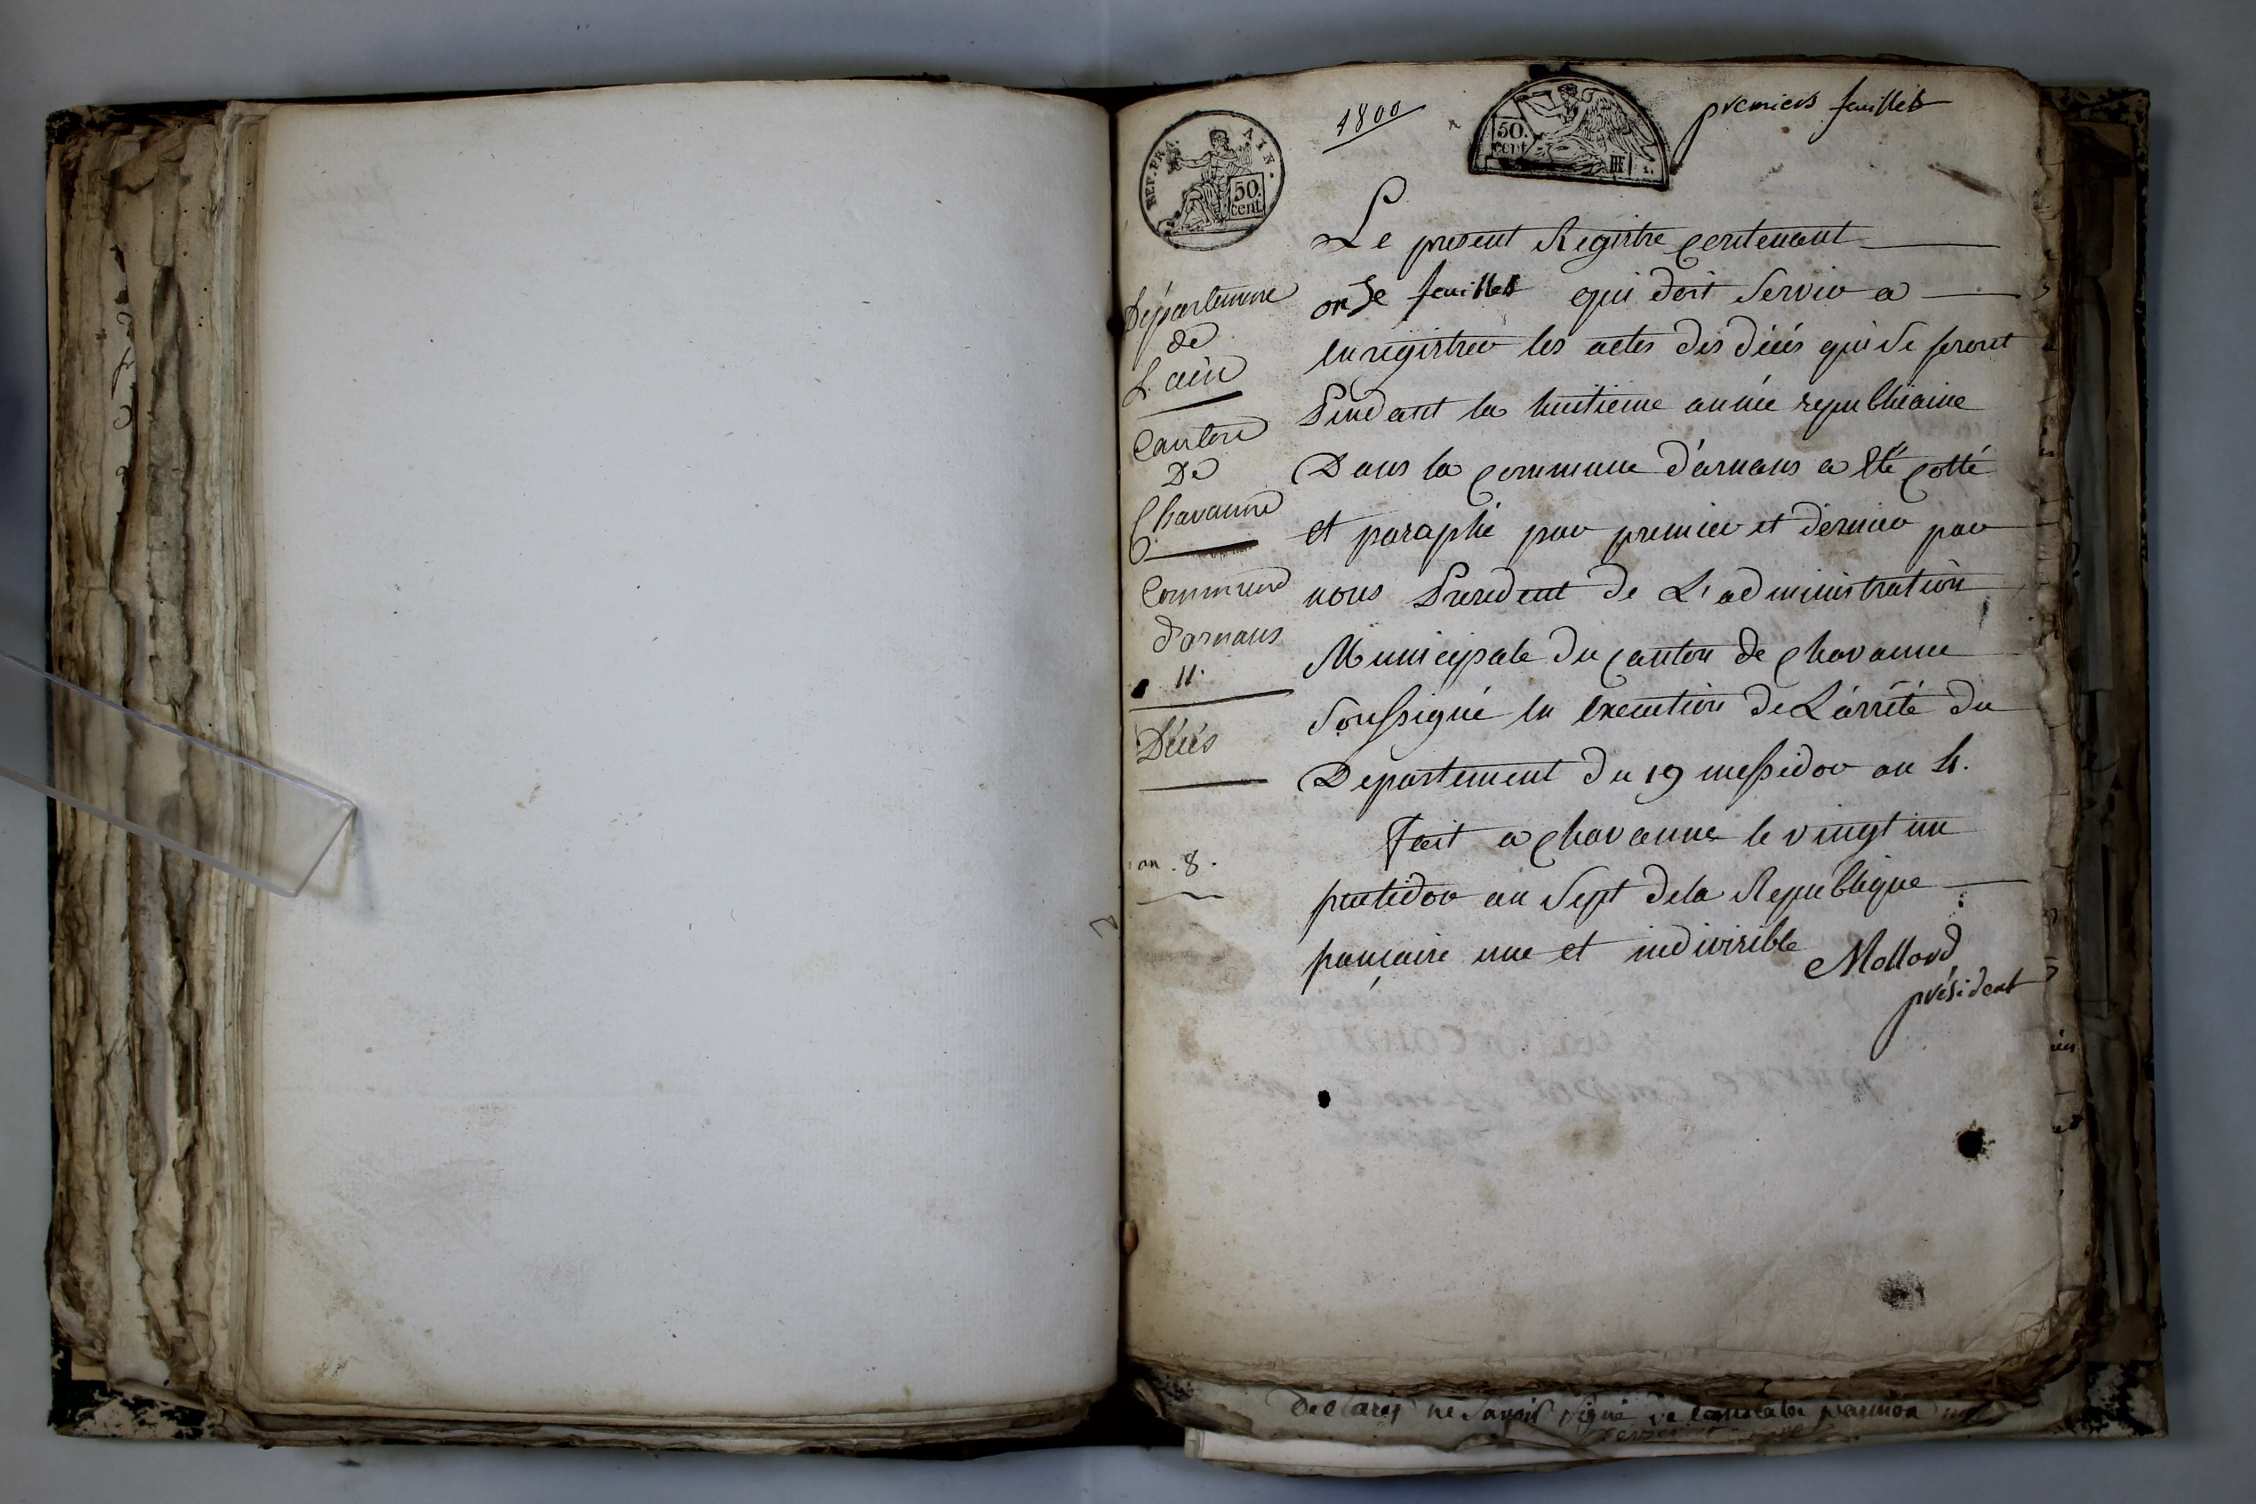 1800
premiers feuillet
REP. FRA. AIN.
50. cent
50. cent
Département
de
L'ain
Canton
De
Chavanne
Commune
d'arnans
11.
Décés
an. 8.
Le présent Registre contenant
onze feuillet qui doit servir a
enregistrer les actes des décés qui se feront
Pendant la huitieme année republicaine
Dans la commune d'arnans a été cotté
et paraphé par premier et dernier par
nous President de L'administration
Municipale du canton de Chavanne
Soussigné en execution de L'arrété du
Departement du 19 messidor an 4.
Fait a Chavanne le vingt un
fructidor an Sept de la Republique
française une et indivisible
Mollard
président
Declarés ne savoir signé